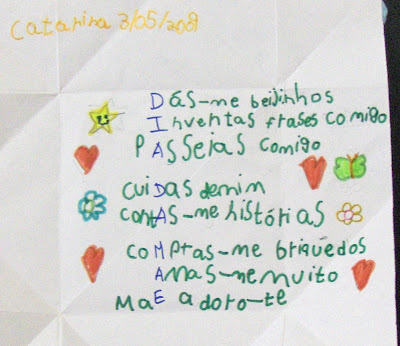 Catarina 3/05/2009
Dás-me beijinhos
Inventas frases comigo
PAsseias comigo
cuiDas demim
contAs-me histórias
coMpras-me briquedos
Amas-me muito
MaE adoro-te